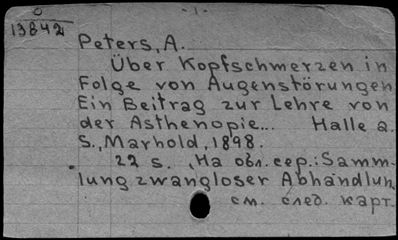 0
- 1 -
13842
Peters, A.
Über Kopfschmerzen in
Folge von Augenstörungen
Ein Beitrag zur Lehre von
der Asthenopie... Halle a.
S., Marhold, 1898.
22 s. , На обл. сер.: Samm-
lung zwangloser Abhandlun
см. след. карт.